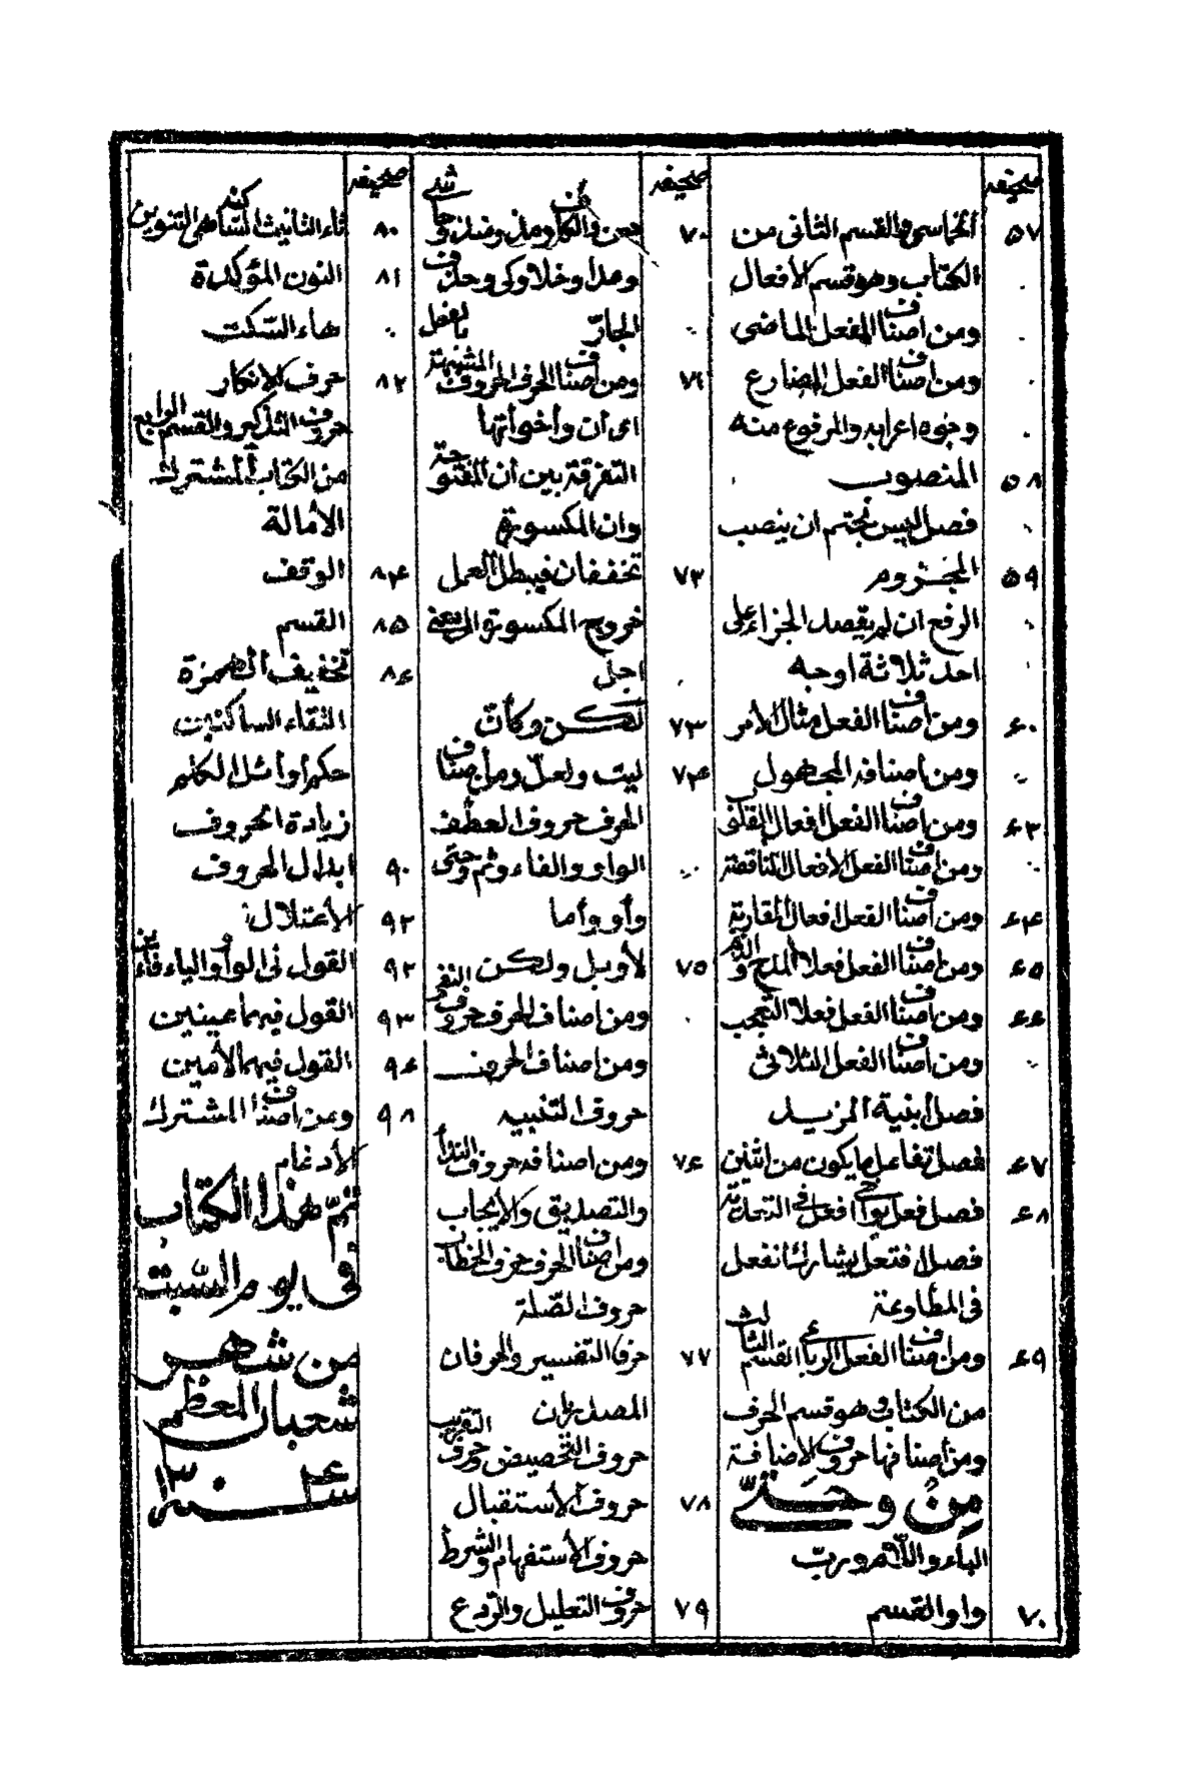 صحيفه
٥٧ الخماسى والقسم الثانى من
الكتاب وهو قسم الأفعال
ومن اصناف الفعل الماضى
ومن اصناف الفعل المضارع
وجوه اعرابه والمرفوع منه
٥٨ المنصوب
فصل ليس بحتم ان ينصب
٥٩ المجزوم
الرفع ان لم يقصد الجزاء على
احد ثلاثة اوجه
٦٠ ومن اصناف الفعل مثال الأمر
ومن اصنافه المجهول
٦٢ ومن اصناف الفعل افعال القلوب
ومن اصناف الفعل الأفعال الناقصة
٦٤ ومن اصناف الفعل افعال المقاربة
٦٥ ومن اصناف الفعل فعلا المدح والذم
٦٦ ومن اصناف الفعل فعلا التعجب
ومن اصناف الفعل الثلاثى
فصل أبنية المزيد
٦٧ فصل تفاعل لما يكون من اثنين
٦٨ فصل فعل يواخى افعل فى التعدية
فصل افتعل يشارك انفعل
فى المطاوعة
٦٩ ومن اصناف الفعل الرباعى القسم الثالث
من الكتاب وهو قسم الحرف
ومن أصنافها حروف الاضافة
مِن وحتّى
الباء واللام وربّ
٧٠ واو القسم
صحيفه
٧٠ وعن والكاف ومذ ومنذ وحاشى
وعدا وخلا وكى وحذف
الجارّ
٧١ ومن اصناف الحرف الحروف المشبهة بالفعل
اى أن وأخواتها
التفرقة بين ان المفتوحة
وان المكسورة
٧٢ تخففان فيبطل العمل
خروج المكسورة الى معنى
اجل
٧٣ لكن وكأن
٧٤ ليت ولعلّ ومن أصناف
الحرف حروف العطف
الواو والفاء وثم وحتى
وأو وأما
٧٥ لا وبل ولكن
ومن اصناف الحرف حروف النفى
ومن اصناف الحرف
حروف التنبيه
٧٦ ومن اصنافه حروف النداء
والتصديق والايجاب
ومن اصناف الحرف حرف الخطاب
حروف الصّلة
٧٧ حرفا التفسير والحرفان
المصدريان
حروف التحضيض وحرف التقريب
٧٨ حروف الأستقبال
حروف الأستفهام والشرط
٧٩ حروف التعليل والرّدع
صحيفه
٨٠ تاء التأنيث الساكنة التنوين
٨١ النون المؤكدة
هاء السّكت
٨٢ حرف الانكار
حروف التذكير والقسم الرابع
من الكتاب المشترك
الأمالة
٨٤ الوقف
٨٥ القسم
٨٦ تخفيف الهمزة
التقاء الساكنين
حكم أوائل الكلم
زيادة الحروف
٩٠ ابدال الحروف
٩٢ الأعتلال
٩٢ القول فى الواو والياء فائين
٩٣ القول فيهما عينين
٩٤ القول فيهما لأمين
٩٨ ومن اصناف المشترك
الأدغام
تمّ هذا الكتاب
فى يوم السّبت
من شهر
شعبان المعظم
سنة ١٣٠٤